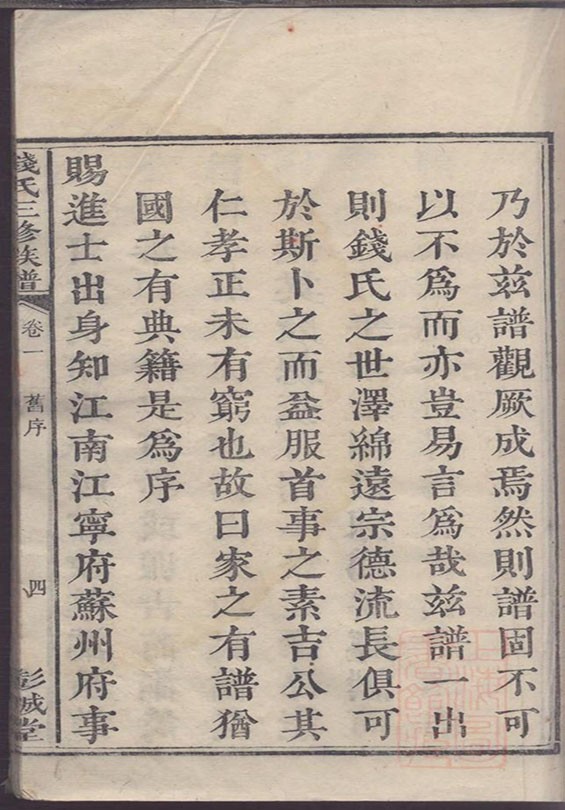 乃於兹譜觀厥成焉然則譜固不可
以不爲而亦豈易言爲哉兹譜一出
則錢氏之世澤綿遠宗德流長俱可
於斯卜之而益服首事之素吉公其
仁孝正未有窮也故曰家之有譜猶
國之有典籍是爲序
賜進士出身知江南江寧府蘇州府事
錢氏三修族譜
卷一
舊序
四
彭城堂